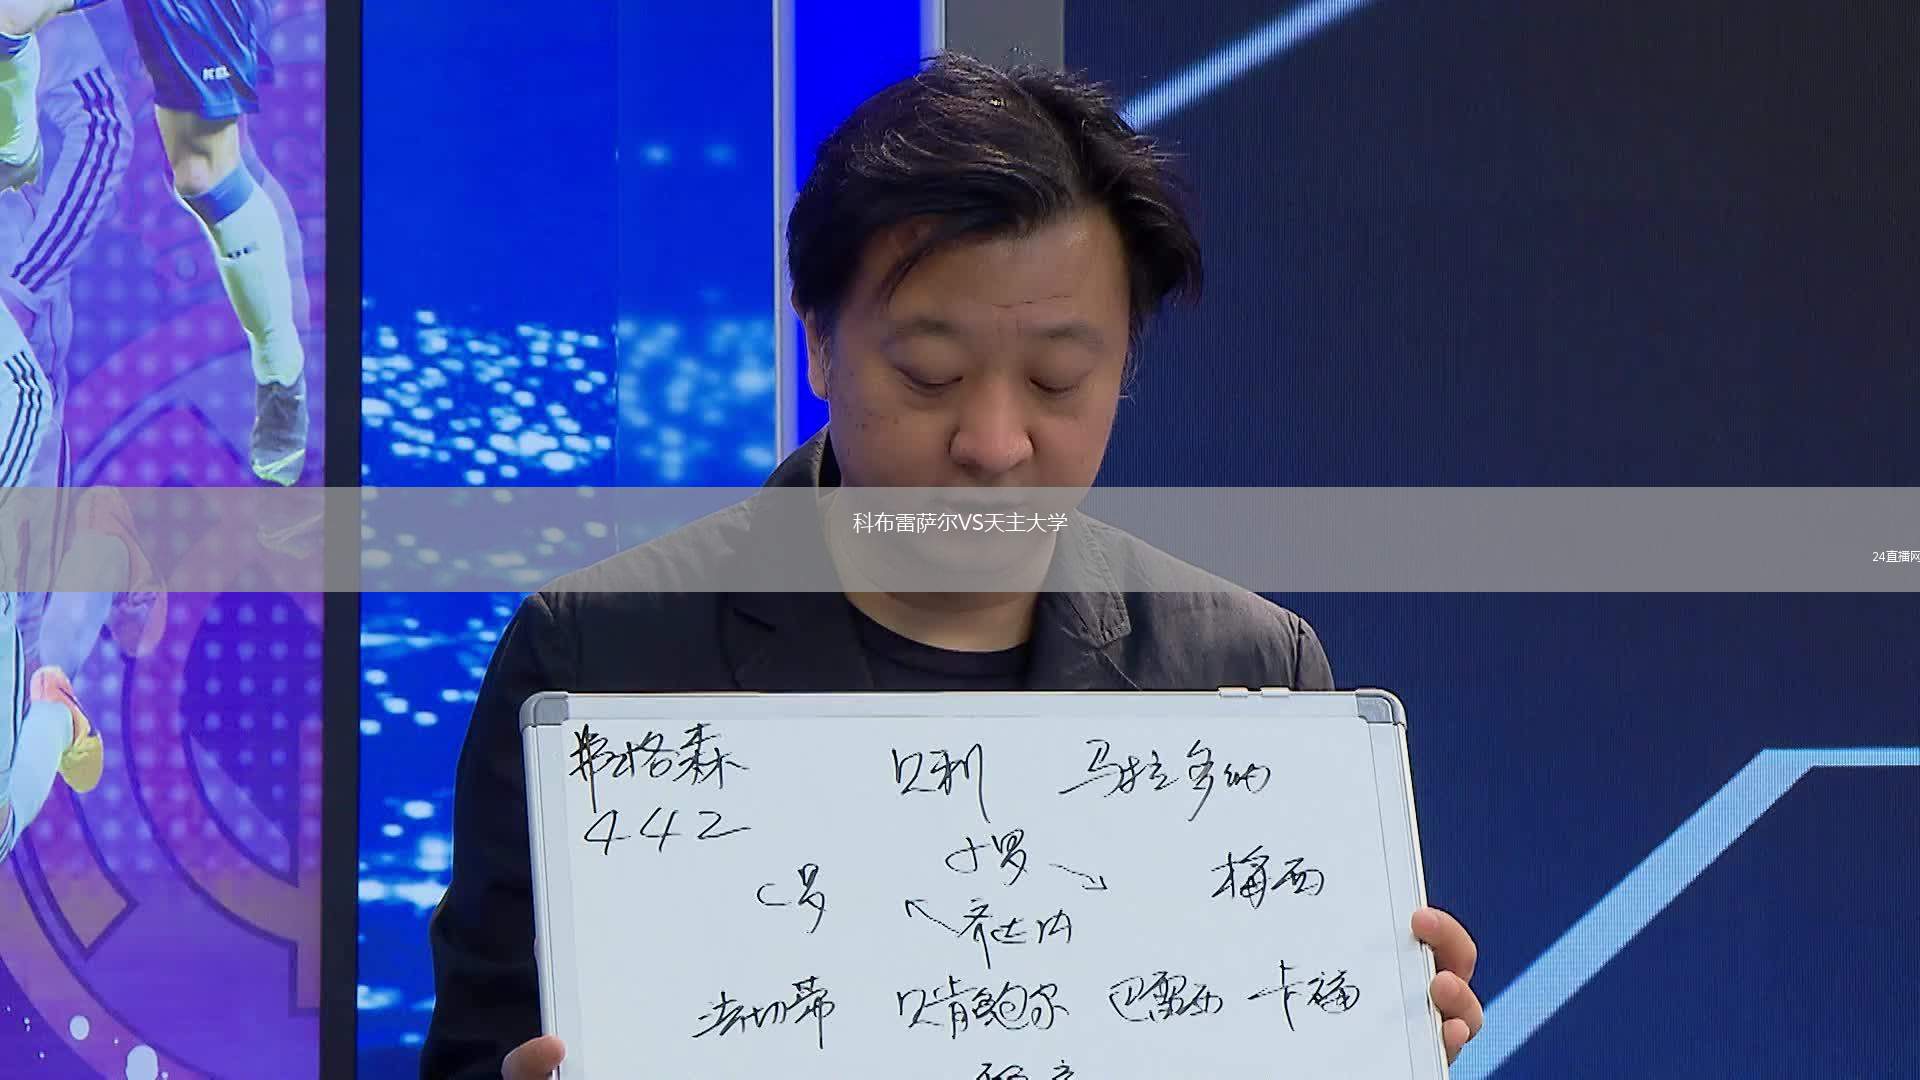 科布雷萨尔VS天主大学
24直播网
弗格森 贝利 马拉多纳
442
小罗
C罗 梅西
齐达内
法切蒂 贝肯鲍尔 巴雷西 卡福